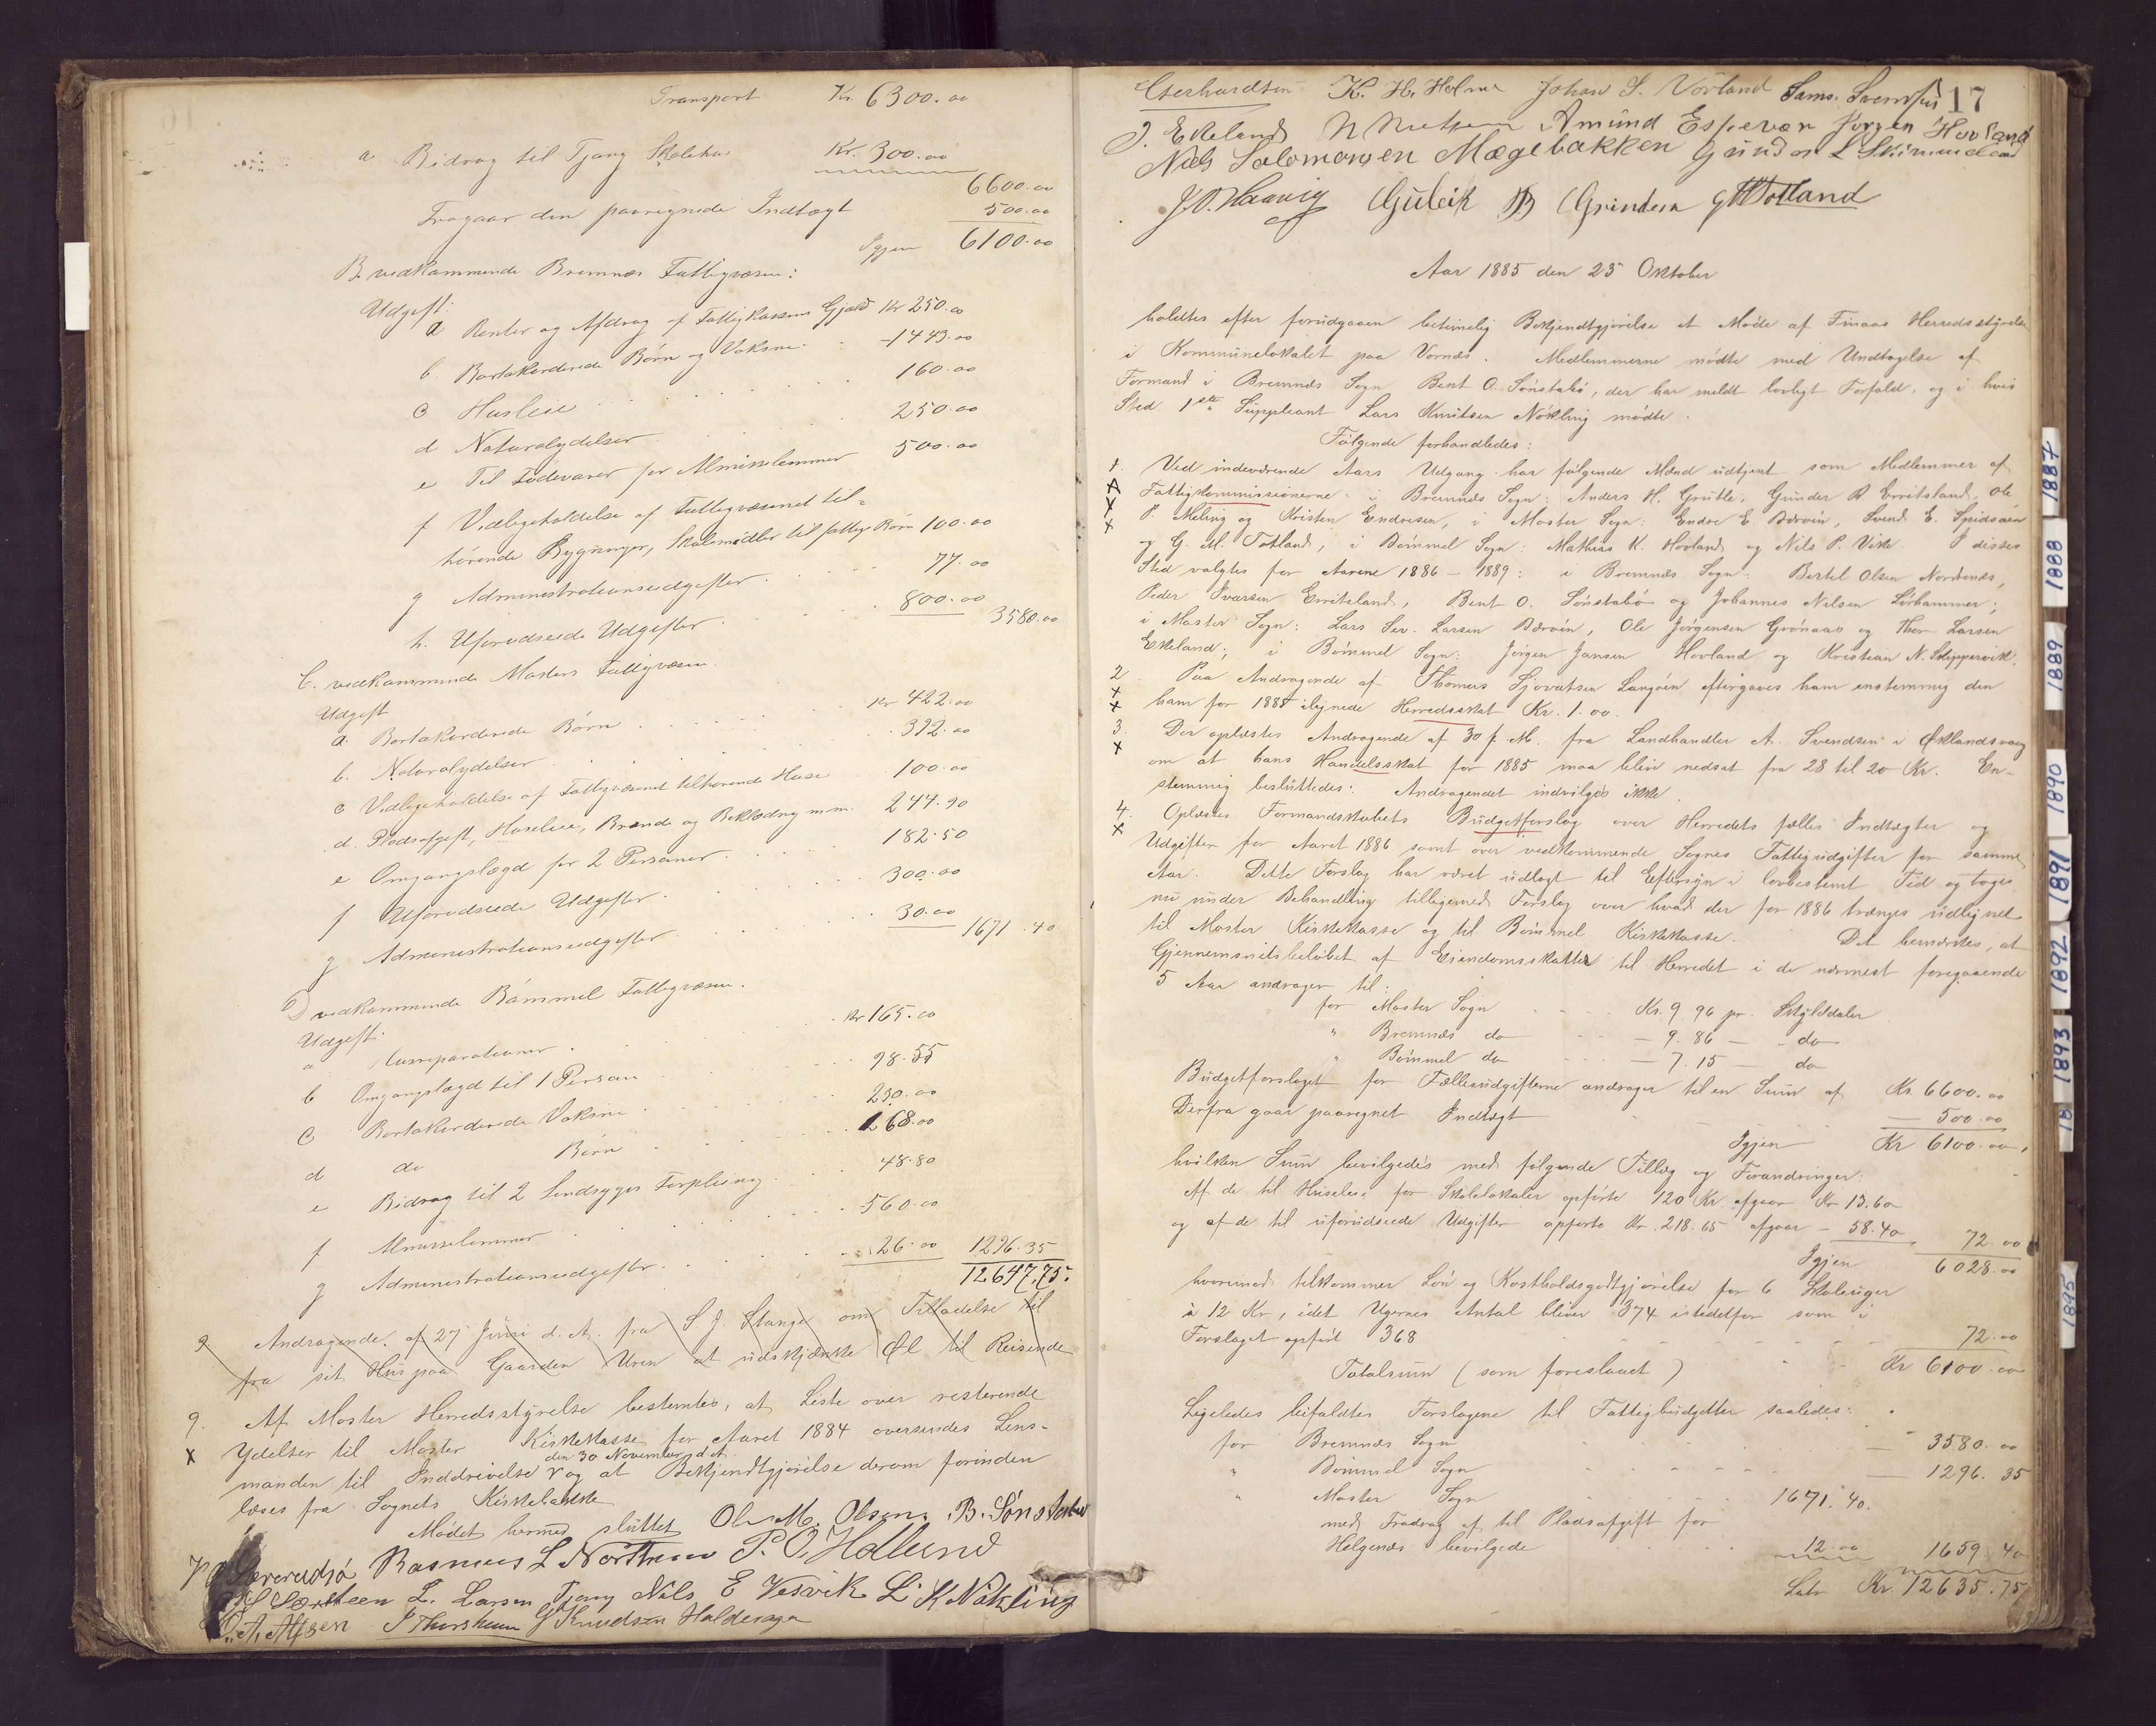 Transport Kr. 6300.00
a Bidrag til Tjang Skolehus Kr. 300.00
6600.00
Fragaar den paaregnede Indtægt 500.00
Igjen 6100.00
B. vedkommende Bremnæs Fattigvæsen:
Udgift:
a Renter og Afdrag af Fattigkassens Gjæld Kr 250.00
b. Bortakkorderede Børn og Voksne - 1443.00
c Husleie 160.00
d Naturalydelser 250.00
e Til Fødevarer for Almisselemmer 500.00
f Vedligeholdelse af Fattigvæsenet til-
hørende Bygninger, Skolemidler til fattige Børn 100.00
g Administrationsudgifter 77.00
h. Uforudseede Udgifter 800.00 3580.00
C. vedkommende Mosters Fattigvæsen.
Udgift
a. Bortakorderede Børn Kr 422.00
b. Naturalydelser 392.00
c Vedligeholdelse af Fattigvæsenet tilhørende Huse 100.00
d. Pladsafgift, Husleie, Brænde og Beklædning m.m. 244.90
e Omgangslægd for 2 Personer 182.50
f Uforudseede Udgifter 300.00
g Administrationsudgifter 30.00 1671.40
D vedkommende Bømmel Fattigvæsen.
Udgift:
a Husreparationer Kr 165.00
b Omgangslægd til 1 Person 98.55
c Bortakorderede Voksne 230.00
d do Børn 168.00
e Bidrag til 2 Sindsyges Forpleining 48.80
f Almisselemmer 560.00
g Administrationsudgifter 26.00 1296.35
12647.75.
9 Andragende af 27 Juni d. A. fra S J. Stange om Tilladelse til
fra sit Hus paa Gaarden Uren at udskjænke Øl til Reisende
9. Af Moster Herredsstyrelse bestemtes, at Liste over resterende
x Ydelser til Moster Kirkekasse for Aaret 1884 oversendes Lens-
den 30 November d. A.
manden til Inddrivelse v og at Bekjendtgjørelse derom forinden
læses fra Sognets Kirkebakke
Mødet hermed sluttet Ole M. Olsen. B. Sønstabø
Rasmus L Northun P. O. Hollund
L. Larsen Tjong Nils E Vesvik L. K Nøkling
A. Alfsen J Thorsheim G Knudsen Halderager
17
Gerhardsen K. H. Holme Johan S. Vorland Sams.
J. Ekeland N Nielsen Amund Espevær Jørgen Hovland
Niels Salomonsen Mægebakken Gunder L Skimmeland
J. O. Haavig Guleik B Grinden G M Totland
Aar 1885 den 25 Oktober
holdtes efter forudgaaen betimelig Bekjendtgjørelse et Møde af Finaas Herredsstyrelse
i Kommunelokalet paa Vornæs. Medlemmerne mødte med Undtagelse af
Formand i Bremnæs Sogn Bent O. Sønstabø, der har meldt lovligt Forfald, og i hvis
Sted 1ste Suppleant Lars Knutsen Nøkling mødte.
Følgende forhandledes:
1. Ved indeværende Aars Udgang har følgende Mænd udtjent som Medlemmer af
x Fattigkommissionerne: i Bremnæs Sogn: Anders H. Grutle, Gunder R. Erritsland, Ole
x P. Meling og Kristen Endresen, i Moster Sogn: Endre E. Bærøen, Svend E. Spidsøen
x og G. M. Totland, i Bømmel Sogn: Mathias K. Hovland og Nils P. Vik. I disses
Sted valgtes for Aarene 1886 - 1889: i Bremnæs Sogn: Bertel Olsen Nordenæs,
Peder Iversen Erritsland, Bent O. Sønstabø og Johannes Nilsen Sørhammer;
i Moster Sogn: Lars Sev. Larsen Bærøen, Ole Jørgensen Grønaas og Thor Larsen
Ekeland; i Bømmel Sogn: Jørgen Jansen Hovland og Kristian N. Skippervik.
2 Paa Andragende af Thomas Sjovatsen Langøen eftergaves ham enstemmig den
x ham for 1885 ilignede Herredsskat Kr. 1.00.
x
3. Der oplæstes Andragende af 30 f. M. fra Landhandler A. Svendsen i Øklandsvaag
x om at hans Handelsskat for 1885 maa blive nedsat fra 28 til 20 Kr. En-
stemmig besluttedes: Andragendet indvilges ikke.
4. Oplæstes Formandskabets Budgetforslag over Herredets fælles Indtægter og
x Udgifter for Aaret 1886 samt over vedkommende Sognes Fattigudgifter for samme
Aar. Dette Forslag har været udlagt til Eftersyn i lovbestemt Tid og toges
nu under Behandling tilligemed Forslag over hvad der for 1886 trænges udlignet
til Moster Kirkekasse og til Bømmel Kirkekasse. Det bemærkes, at
Gjennemsnitsbeløbet af Eiendomsskatter til Herredet i de nærmest foregaaende
5 Aar andrager til:
for Moster Sogn Kr. 9 96 pr. Skylddaler
" Bremnæs do - 9. 86 - do
" Bømmel do - 7. 15 - do
Budgetforslaget for Fællesudgifterne andrager til en Sum af Kr. 6600.00
Derfra gaar paaregnet Indtægt 500.00
Igjen Kr 6100.00,
hvilken Sum bevilgedes med følgende Tillæg og Forandringer:
Af de til Husleie for Skolelokaler opførte 120 Kr afgaar Kr 13.60
og af de til uforudseede Udgifter opførte Kr. 218.65 afgaar - 58.40 72.00
Igjen 6028.00
hvorimod tilkommer Løn og Kostholdsgodtgjørelse for 6 Skoleuger
à 12 Kr, idet Ugernes Antal bliver 374 istedetfor som i
Forslaget opført 368 72.00
Totalsum (som foreslaaet) Kr 6100.00
Ligeledes bifaldtes Forslagene til Fattigbudgetter saaledes:
for Bremnæs Sogn - 3580.00
" Bømmel Sogn - 1296.35
" Moster Sogn 1671.40.
med Fradrag af til Pladsafgift for
Helgenæs bevilgede 12.00 1659 40
Latr. Kr. 12635.75
1887
1888
1889
1890
1891
1892
1893
18
1895